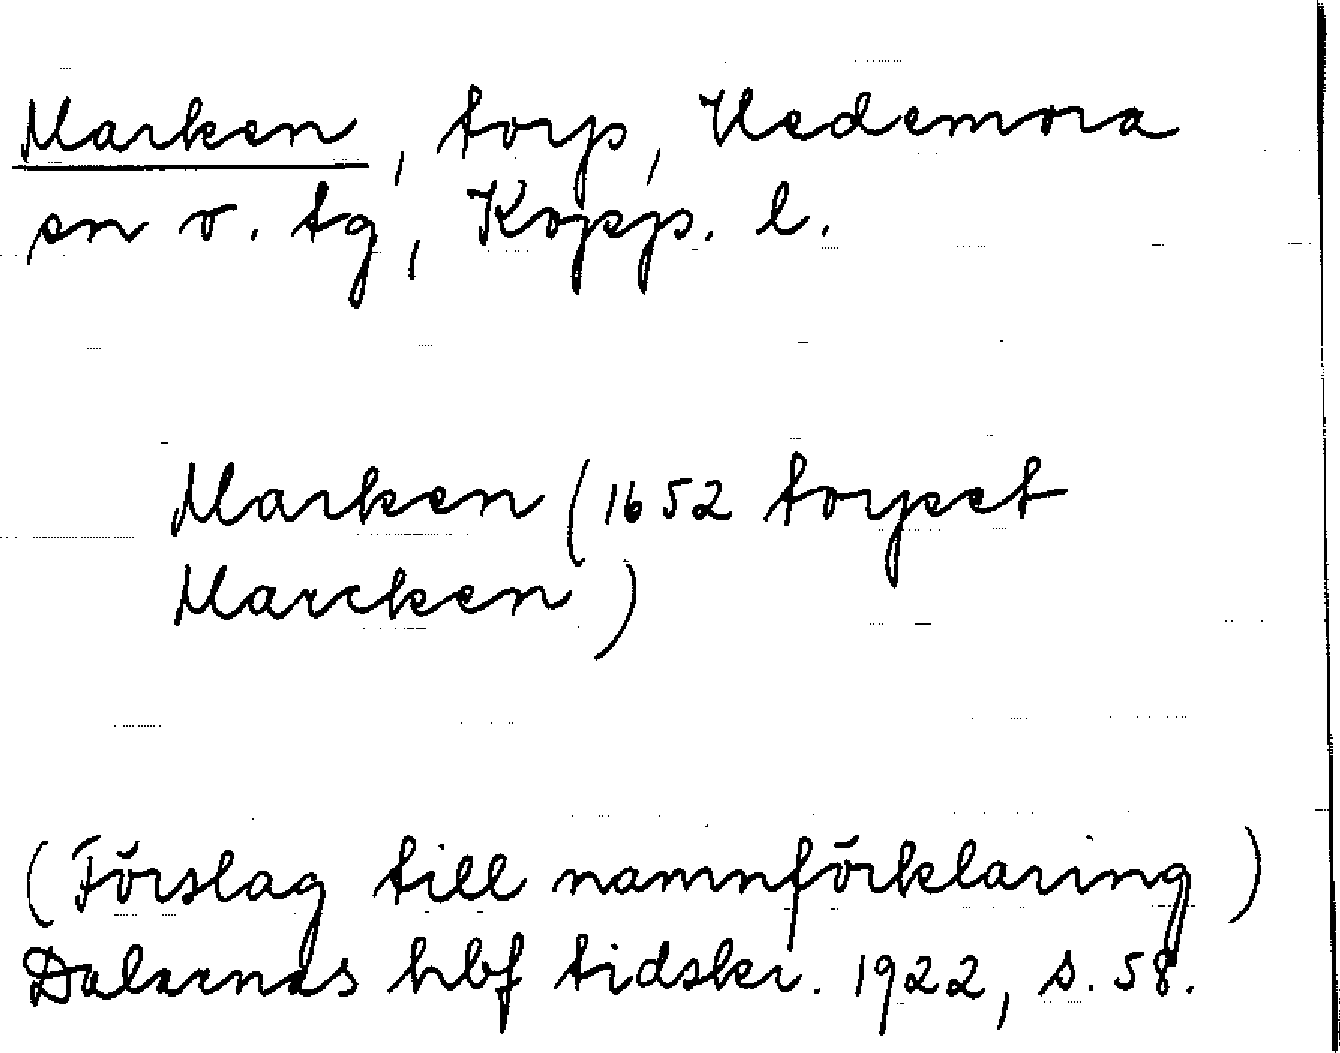 Marken, torp, Hedemora
sn o. tg, Kopp. l.
Marken (1652 torpet
Marcken)
(Förslag till namnförklaring)
Dalarnas hbf tidskr. 1922, s. 58.